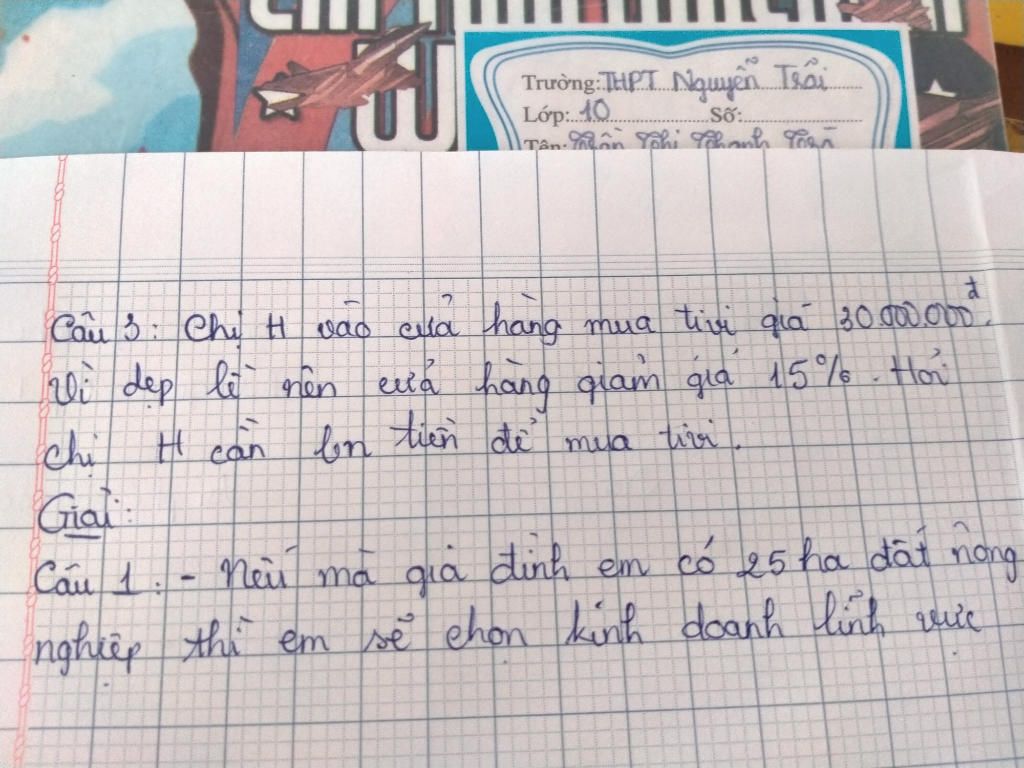 Trường: THPT Nguyễn Trãi
Lớp: 10 Số:
Tên: Trần Thị Thanh
Câu 3: Chị H vào cửa hàng mua tivi giá 30.000.000đ.
Vì dẹp lễ nên cửa hàng giảm giá 15%. Hỏi
chị H cần bn tiền để mua tivi.
Giải:
Câu 1: - Nếu mà gia đình em có 25 ha đất nông
nghiệp thì em sẽ chọn kinh doanh lĩnh vực